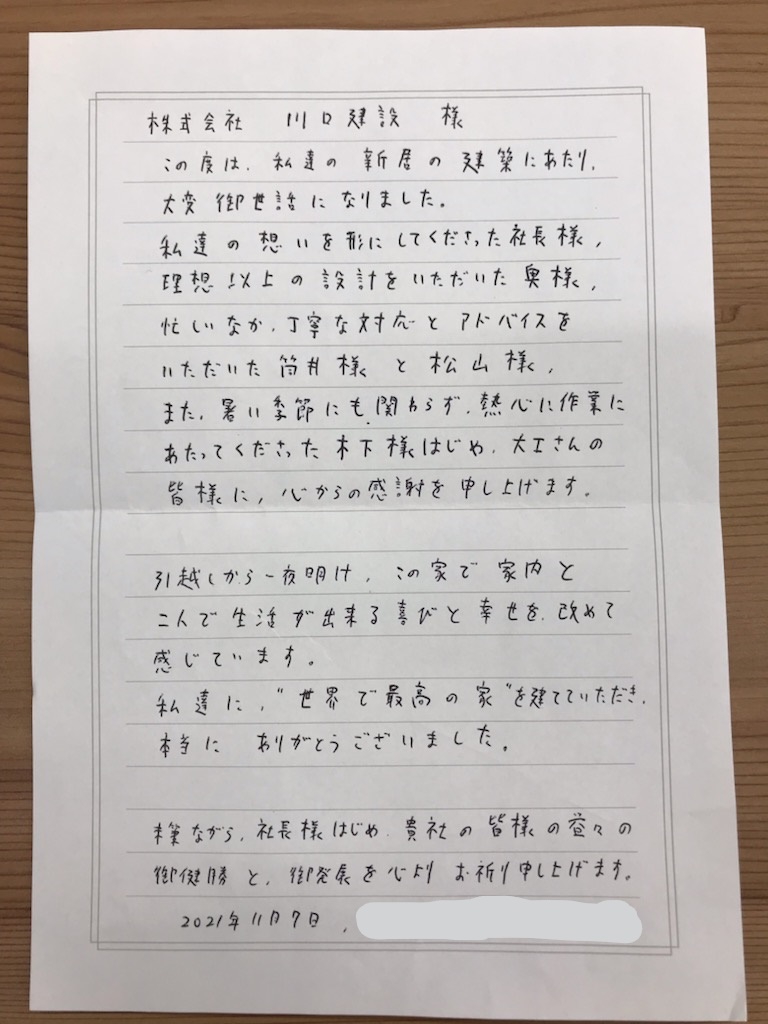 株式会社 川口建設 様
この度は、私達の新居の建築にあたり、
大変御世話になりました。
私達の想いを形にしてくださった社長様、
理想以上の設計をいただいた奥様、
忙しいなか、丁寧な対応とアドバイスを
いただいた筒井様と松山様、
また、暑い季節にも関わらず、熱心に作業に
あたってくださった木下様はじめ、大工さんの
皆様に、心からの感謝を申し上げます。
引越しから一夜明け、この家で家内と
二人で生活が出来る喜びと幸せを、改めて
感じています。
私達に、"世界で最高の家"を建てていただき、
本当に ありがとうございました。
末筆ながら、社長様はじめ、貴社の皆様の益々の
御健勝と、御発展を心よりお祈り申し上げます。
2021年11月7日、